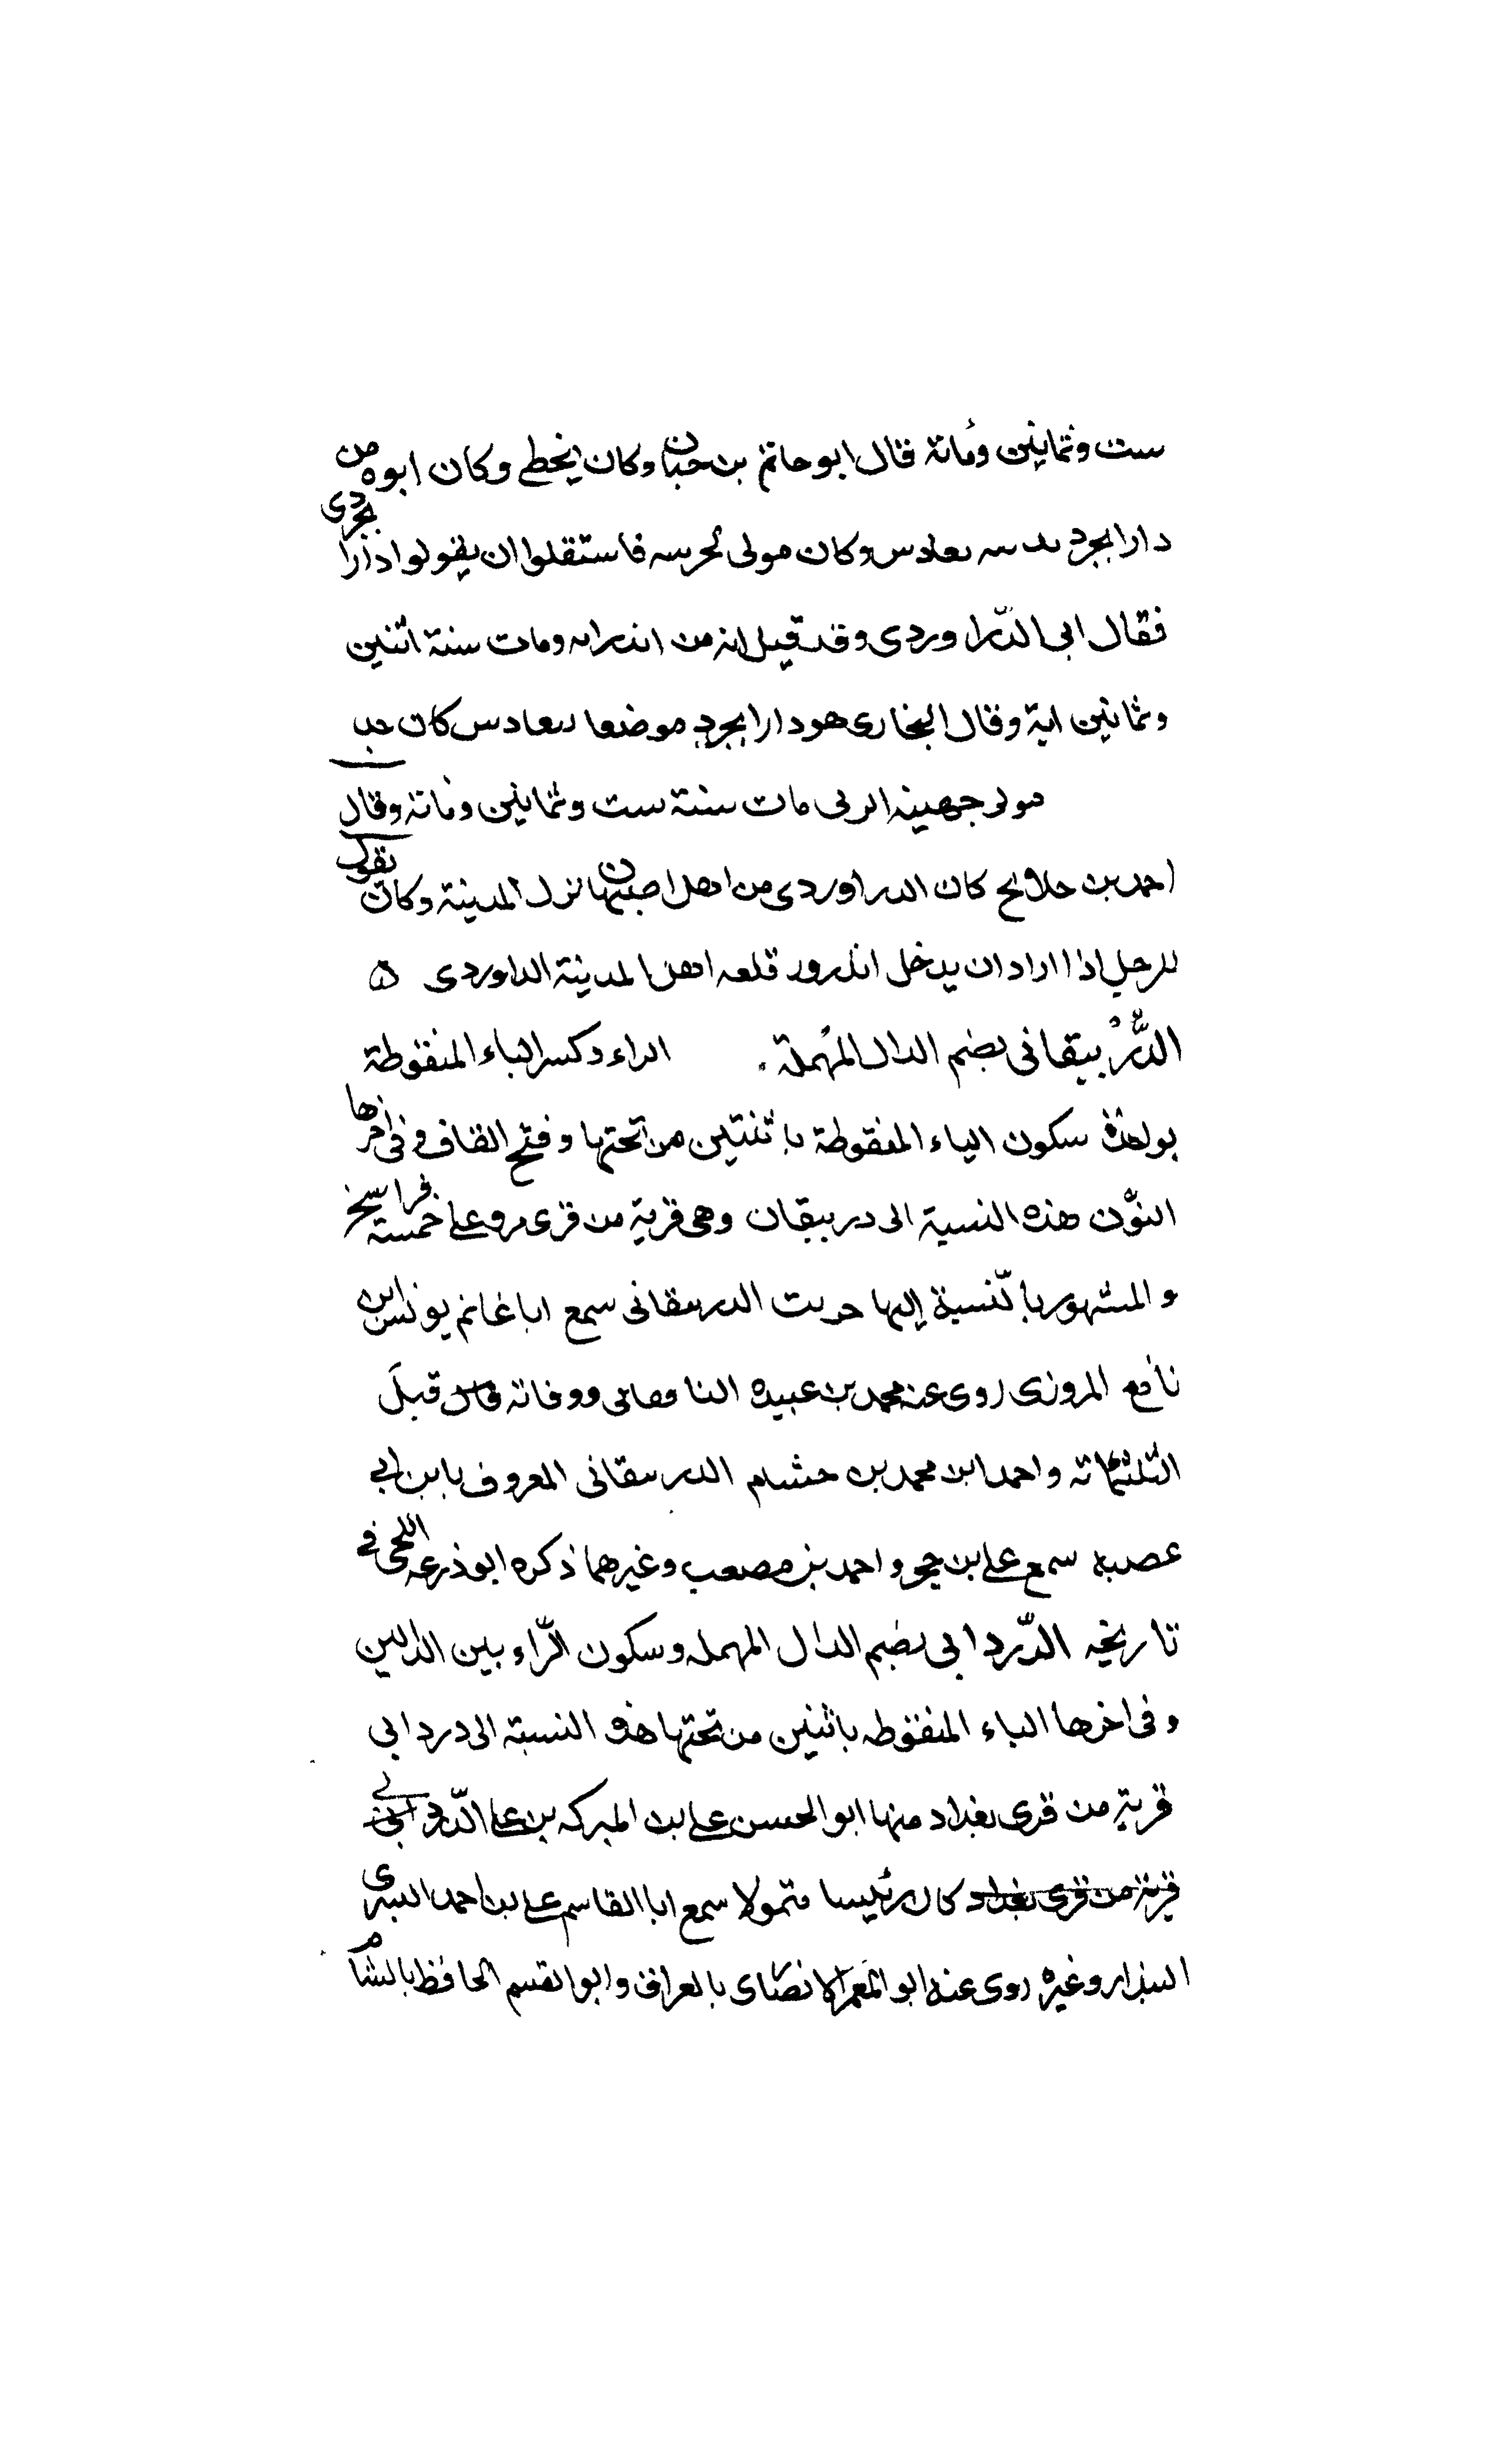 ست وثمانين ومائة قال ابو حاتم بن حبان وكان يخطى وكان ابوه من
دارابجرد وكان مولى فاستقلوا ان يقولوا دارا بجردى
فقال ابى الدّراوردى وقد قيل انه من اندرابه ومات سنة اثنين
وثمانين اية وقال البخارى هو دارابجرد موضعا كان
مولى جهينه مات سنة ست وثمانين ومائة وقال
احمد بن كان الدراوردى من اهل اصبهان نزل المدينة وكان يقول
للرجل اذا اراد ان يدخل اندرور اهل المدينة الداوردى ه
الدُّرْبيقانى بضم الدال المُهملة . الراء وكسر الباء المنقوطة
بواحدة سكون الياء المنقوطة باثنتين من تحتها وفتح القاف وفى اخرها
النوّن هذه النسبة الى دربيقان وهى قرية من قرى مرو على خمسة فراسخ
والمشهور بالنّسبة إليها حريث الدربيقانى سمع ابا غانم يونس ابن
نافع المروزى روى عنه محمد بن عبيده النافقانى ووفاته قبل
الثلثمائة واحمد ابن محمد بن حشام الدربيقانى المعروف بابن ابي
عصبه سمع على بن حجر واحمد بن مصعب وغيرهما ذكره ابو ذرعه في
تاريخه الدّردابى بضم الدال المهمله وسكون الرّاء بين الدالين
وفى اخرها الباء المنقوطه باثنين من تحتها هذه النسبة الى دردابى
قرية من قرى بغداد منها ابو الحسن على بن المبركه بن على الدّردابى
قرية من قرى بغداد كان رئيسا متمولا سمع ابا القاسم على بن احمد البسرى
البندار وغيره روى عنه ابو المعمر الانصارى بالعراق وابو القسم الحافظ بالشام